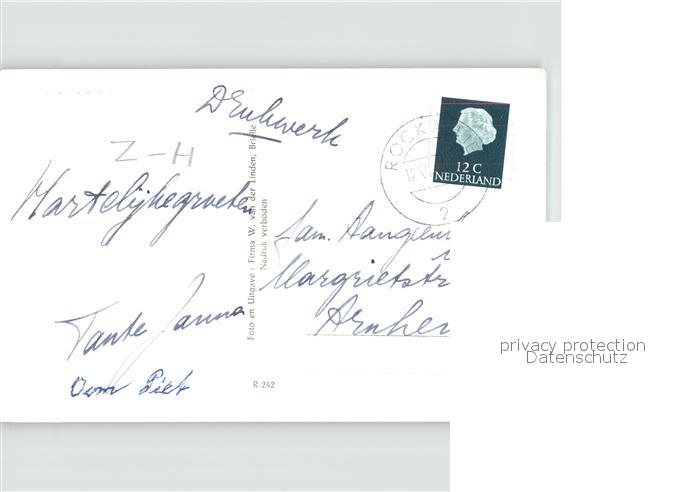 Drukwerk
Z-H
Hartelijke groeten
Tante Janna
Oom Piet
Foto en Uitgave: Firma W. van der Linden, Brielle
Nadruk verboden
R 242
ROCK
12
12 C
NEDERLAND
fam.
Margrietstr
Arnhem
privacy protection
Datenschutz